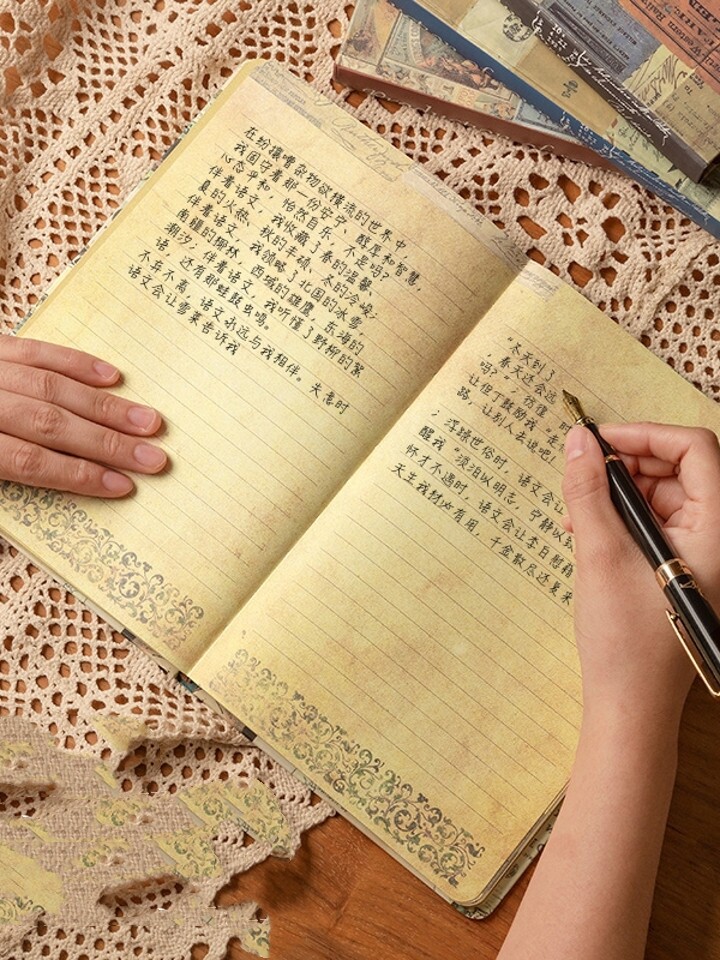 在纷攘嘈杂物欲横流的世界中
我固守着那一份安宁、醇厚和智慧,
心态平和,怡然自乐,不是吗?
伴着语文,我收藏了春的温馨、
夏的火热、秋的丰硕、冬的冷峻;
伴着语文,我领略了北国的冰雪,
南疆的椰林,西域的雄鹰,东海的
潮汐;伴着语文,我听懂了野柳的絮
语,还有那蛙鼓虫鸣。
不弃不离,语文永远与我相伴。失意时
语文会让雪莱告诉我
“冬天到了
,春天还会远
吗?”;彷徨 时
让但丁鼓励我“走
路,让别人去说吧!
;浮躁世俗时,语文会让
醒我“淡泊以明志,宁静以致
怀才不遇时,语文会让李白慰藉
天生我材必有用,千金散尽还复来